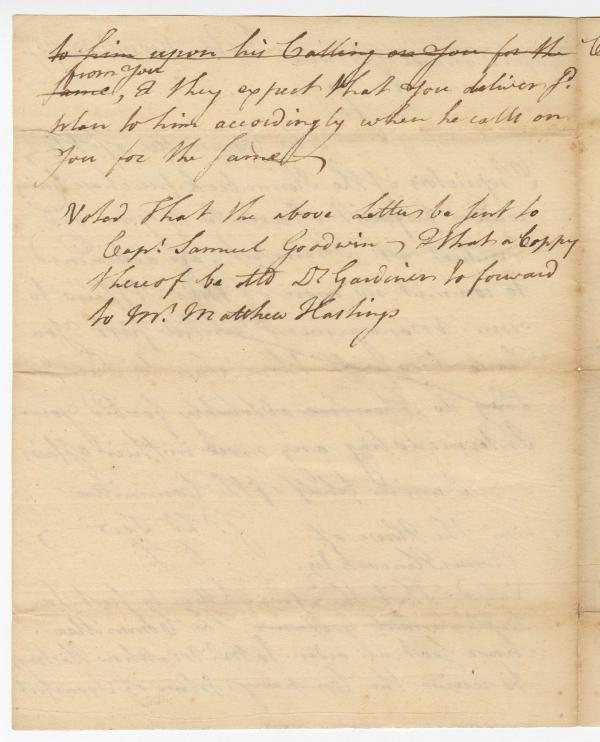 to him upon his Calling on You for the
from You
same, & they expect that You deliver sd.
plan to him accordingly when he calls on
You for the same
Voted That the above Letter be sent to
Capt. Samuel Goodwin & that a Coppy
thereof be dld Dr. Gardiner to forward
to Mr. Matthew Hastings